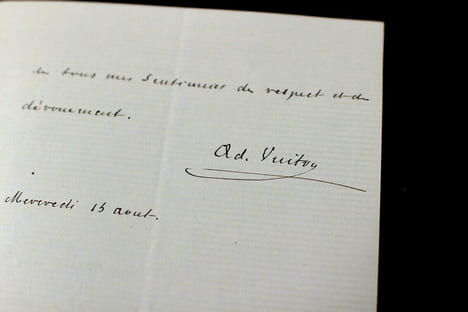 de tous mes Sentimens de respect et de
dévouement.
Ad. Vuitoy
Mercredi 15 aout.